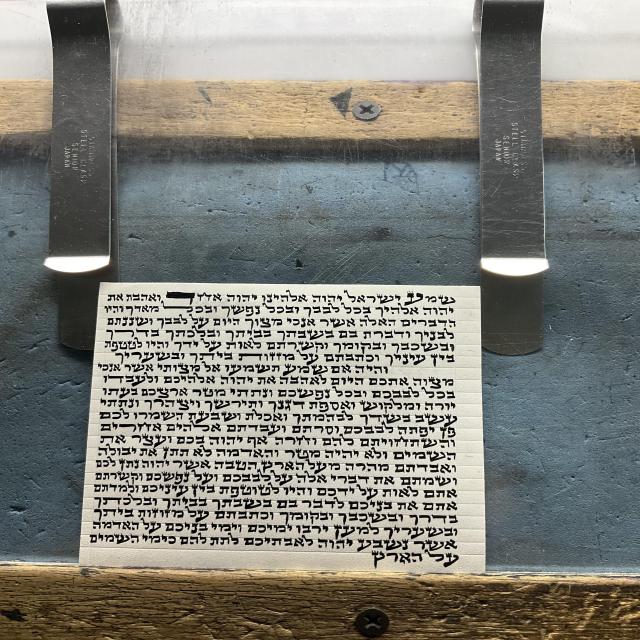 STEEL CLASP
SENIOR
JAPAN
STEEL CLASP
SENIOR
JAPAN
שמע ישראל יהוה אלהינו יהוה אחד ואהבת את
יהוה אלהיך בכל לבבך ובכל נפשך ובכל מאדך והיו
הדברים האלה אשר אנכי מצוך היום על לבבך ושננתם
לבניך ודברת בם בשבתך בביתך ובלכתך בדרך
ובשכבך ובקומך וקשרתם לאות על ידך והיו לטטפת
בין עיניך וכתבתם על מזזות ביתך ובשעריך
והיה אם שמע תשמעו אל מצותי אשר אנכי
מצוה אתכם היום לאהבה את יהוה אלהיכם ולעבדו
בכל לבבכם ובכל נפשכם ונתתי מטר ארצכם בעתו
יורה ומלקוש ואספת דגנך ותירשך ויצהרך ונתתי
עשב בשדך לבהמתך ואכלת ושבעת השמרו לכם
פן יפתה לבבכם וסרתם ועבדתם אלהים אחרים
והשתחויתם להם וחרה אף יהוה בכם ועצר את
השמים ולא יהיה מטר והאדמה לא תתן את יבולה
ואבדתם מהרה מעל הארץ הטבה אשר יהוה נתן לכם
ושמתם את דברי אלה על לבבכם ועל נפשכם וקשרתם
אתם לאות על ידכם והיו לטוטפת בין עיניכם ולמדתם
אתם את בניכם לדבר בם בשבתך בביתך ובלכתך
בדרך ובשכבך ובקומך וכתבתם על מזוזות ביתך
ובשעריך למען ירבו ימיכם וימי בניכם על האדמה
אשר נשבע יהוה לאבתיכם לתת להם כימי השמים
על הארץ